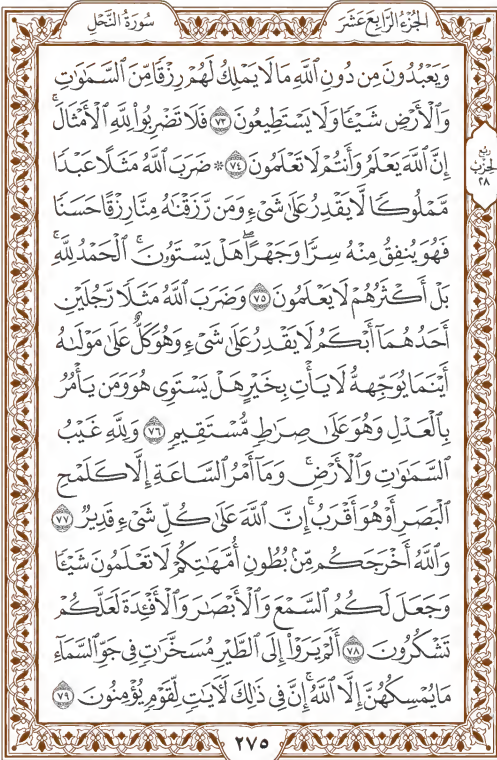 الجزء الرابع عشر
سورة النحل
وَيَعْبُدُونَ مِن دُونِ ٱللَّهِ مَا لَا يَمْلِكُ لَهُمْ رِزْقًا مِّنَ ٱلسَّمَٰوَٰتِ
وَٱلْأَرْضِ شَيْـًٔا وَلَا يَسْتَطِيعُونَ ٧٣ فَلَا تَضْرِبُوا۟ لِلَّهِ ٱلْأَمْثَالَۚ
إِنَّ ٱللَّهَ يَعْلَمُ وَأَنتُمْ لَا تَعْلَمُونَ ٧٤ ۞ ضَرَبَ ٱللَّهُ مَثَلًا عَبْدًا
مَّمْلُوكًا لَّا يَقْدِرُ عَلَىٰ شَىْءٍ وَمَن رَّزَقْنَٰهُ مِنَّا رِزْقًا حَسَنًا
فَهُوَ يُنفِقُ مِنْهُ سِرًّا وَجَهْرًاۖ هَلْ يَسْتَوُۥنَۚ ٱلْحَمْدُ لِلَّهِۚ
بَلْ أَكْثَرُهُمْ لَا يَعْلَمُونَ ٧٥ وَضَرَبَ ٱللَّهُ مَثَلًا رَّجُلَيْنِ
أَحَدُهُمَآ أَبْكَمُ لَا يَقْدِرُ عَلَىٰ شَىْءٍ وَهُوَ كَلٌّ عَلَىٰ مَوْلَىٰهُ
أَيْنَمَا يُوَجِّههُّ لَا يَأْتِ بِخَيْرٍ هَلْ يَسْتَوِى هُوَ وَمَن يَأْمُرُ
بِٱلْعَدْلِ وَهُوَ عَلَىٰ صِرَٰطٍ مُّسْتَقِيمٍ ٧٦ وَلِلَّهِ غَيْبُ
ٱلسَّمَٰوَٰتِ وَٱلْأَرْضِۚ وَمَآ أَمْرُ ٱلسَّاعَةِ إِلَّا كَلَمْحِ
ٱلْبَصَرِ أَوْ هُوَ أَقْرَبُۚ إِنَّ ٱللَّهَ عَلَىٰ كُلِّ شَىْءٍ قَدِيرٌ ٧٧
وَٱللَّهُ أَخْرَجَكُم مِّنۢ بُطُونِ أُمَّهَٰتِكُمْ لَا تَعْلَمُونَ شَيْـًٔا
وَجَعَلَ لَكُمُ ٱلسَّمْعَ وَٱلْأَبْصَٰرَ وَٱلْأَفْـِٔدَةَ لَعَلَّكُمْ
تَشْكُرُونَ ٧٨ أَلَمْ يَرَوْا۟ إِلَى ٱلطَّيْرِ مُسَخَّرَٰتٍ فِى جَوِّ ٱلسَّمَآءِ
مَا يُمْسِكُهُنَّ إِلَّا ٱللَّهُۚ إِنَّ فِى ذَٰلِكَ لَءَايَٰتٍ لِّقَوْمٍ يُؤْمِنُونَ ٧٩
ربع
الحزب
٢٨
٢٧٥